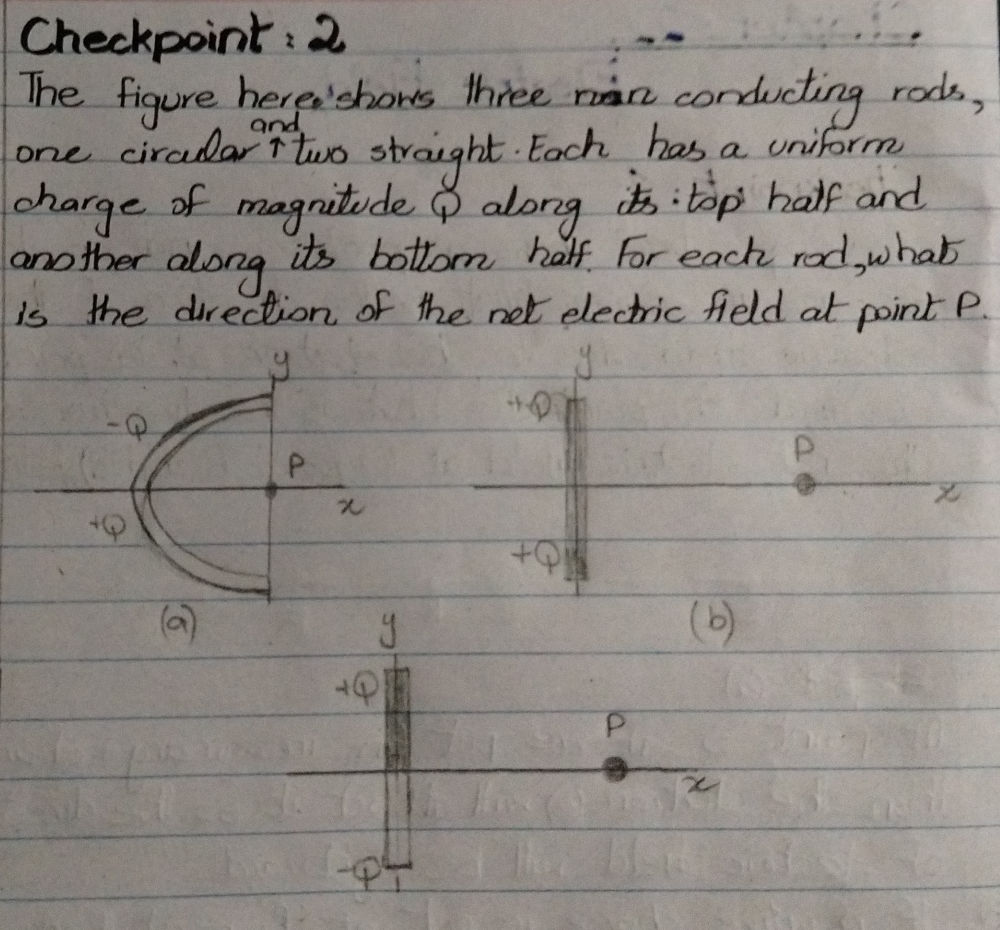 Checkpoint: 2
The figure here shows three non conducting rods,
and
one circular ↑ two straight. Each has a uniform
charge of magnitude Q along its top half and
another along its bottom half. For each rod, what
is the direction of the net electric field at point P.
y
y
-Q
+Q
P
P
x
x
+Q
+Q
(a)
(b)
y
+Q
P
x
-Q